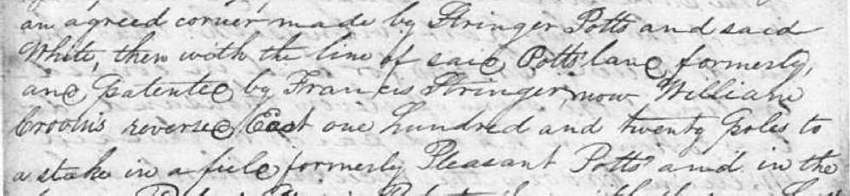 an agreed corner made by Stringer Potts and said
White, then with the line of said Potts lane, formerly,
and Patented by Francis Stringer, now William
reversed, East one hundred and twenty Poles to
a stake in a field formerly Pleasant Potts and in the